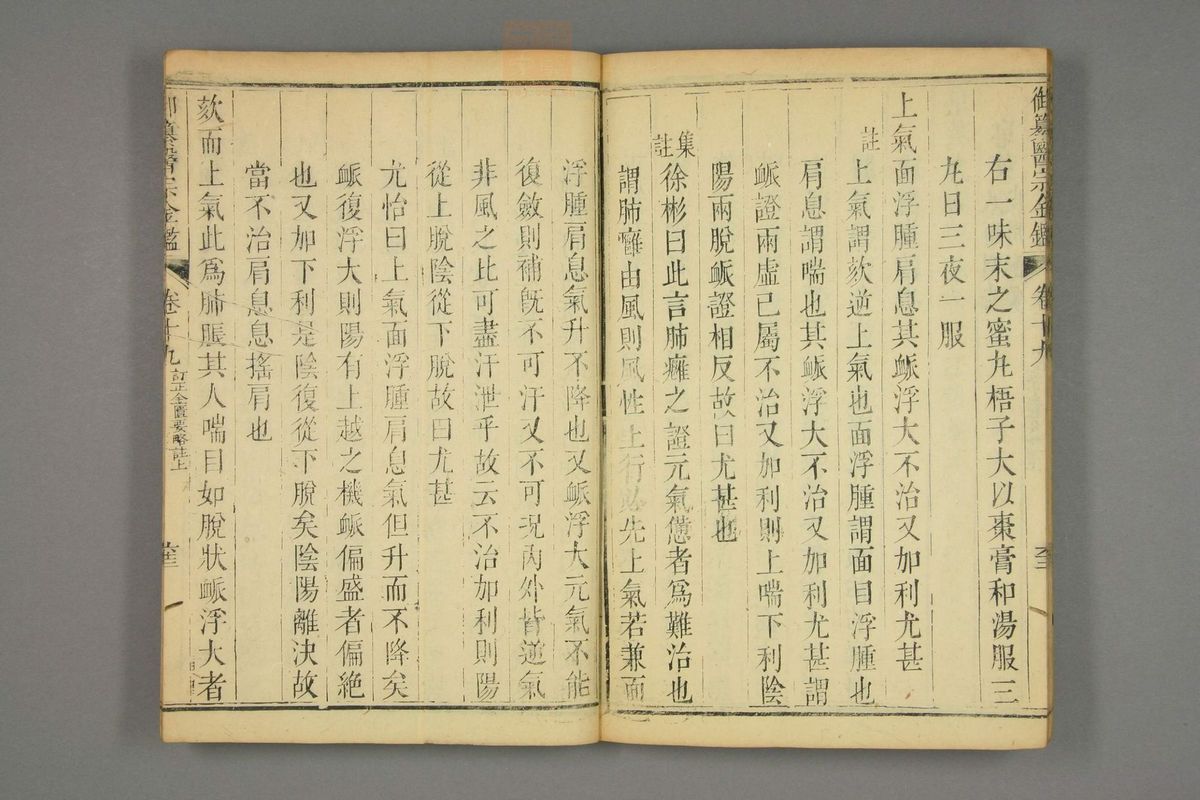 御纂醫宗金鑑 卷十九
右一味末之蜜丸梧子大以棗膏和湯服三
丸日三夜一服
上氣面浮腫肩息其脈浮大不治又加利尤甚
註 上氣謂欬逆上氣也面浮腫謂面目浮腫也
肩息謂喘也其脈浮大不治又加利尤甚謂
脈證兩虛已屬不治又加利則上喘下利陰
陽兩脫脈證相反故曰尤甚也
集註 徐彬曰此言肺癰之證元氣憊者爲難治也
謂肺癰由風則風性上行必先上氣若兼面
浮腫肩息氣升不降也又脈浮大元氣不能
復斂則補旣不可汗又不可況內外皆逆氣
非風之比可盡汗泄乎故云不治加利則陽
從上脫陰從下脫故曰尤甚
尤怡曰上氣面浮腫肩息氣但升而不降矣
脈復浮大則陽有上越之機脈偏盛者偏絶
也又加下利是陰復從下脫矣陰陽離決故
當不治肩息息搖肩也
欬而上氣此爲肺脹其人喘目如脫狀脈浮大者
御纂醫宗金鑑 卷十九 訂正金匱要略註上